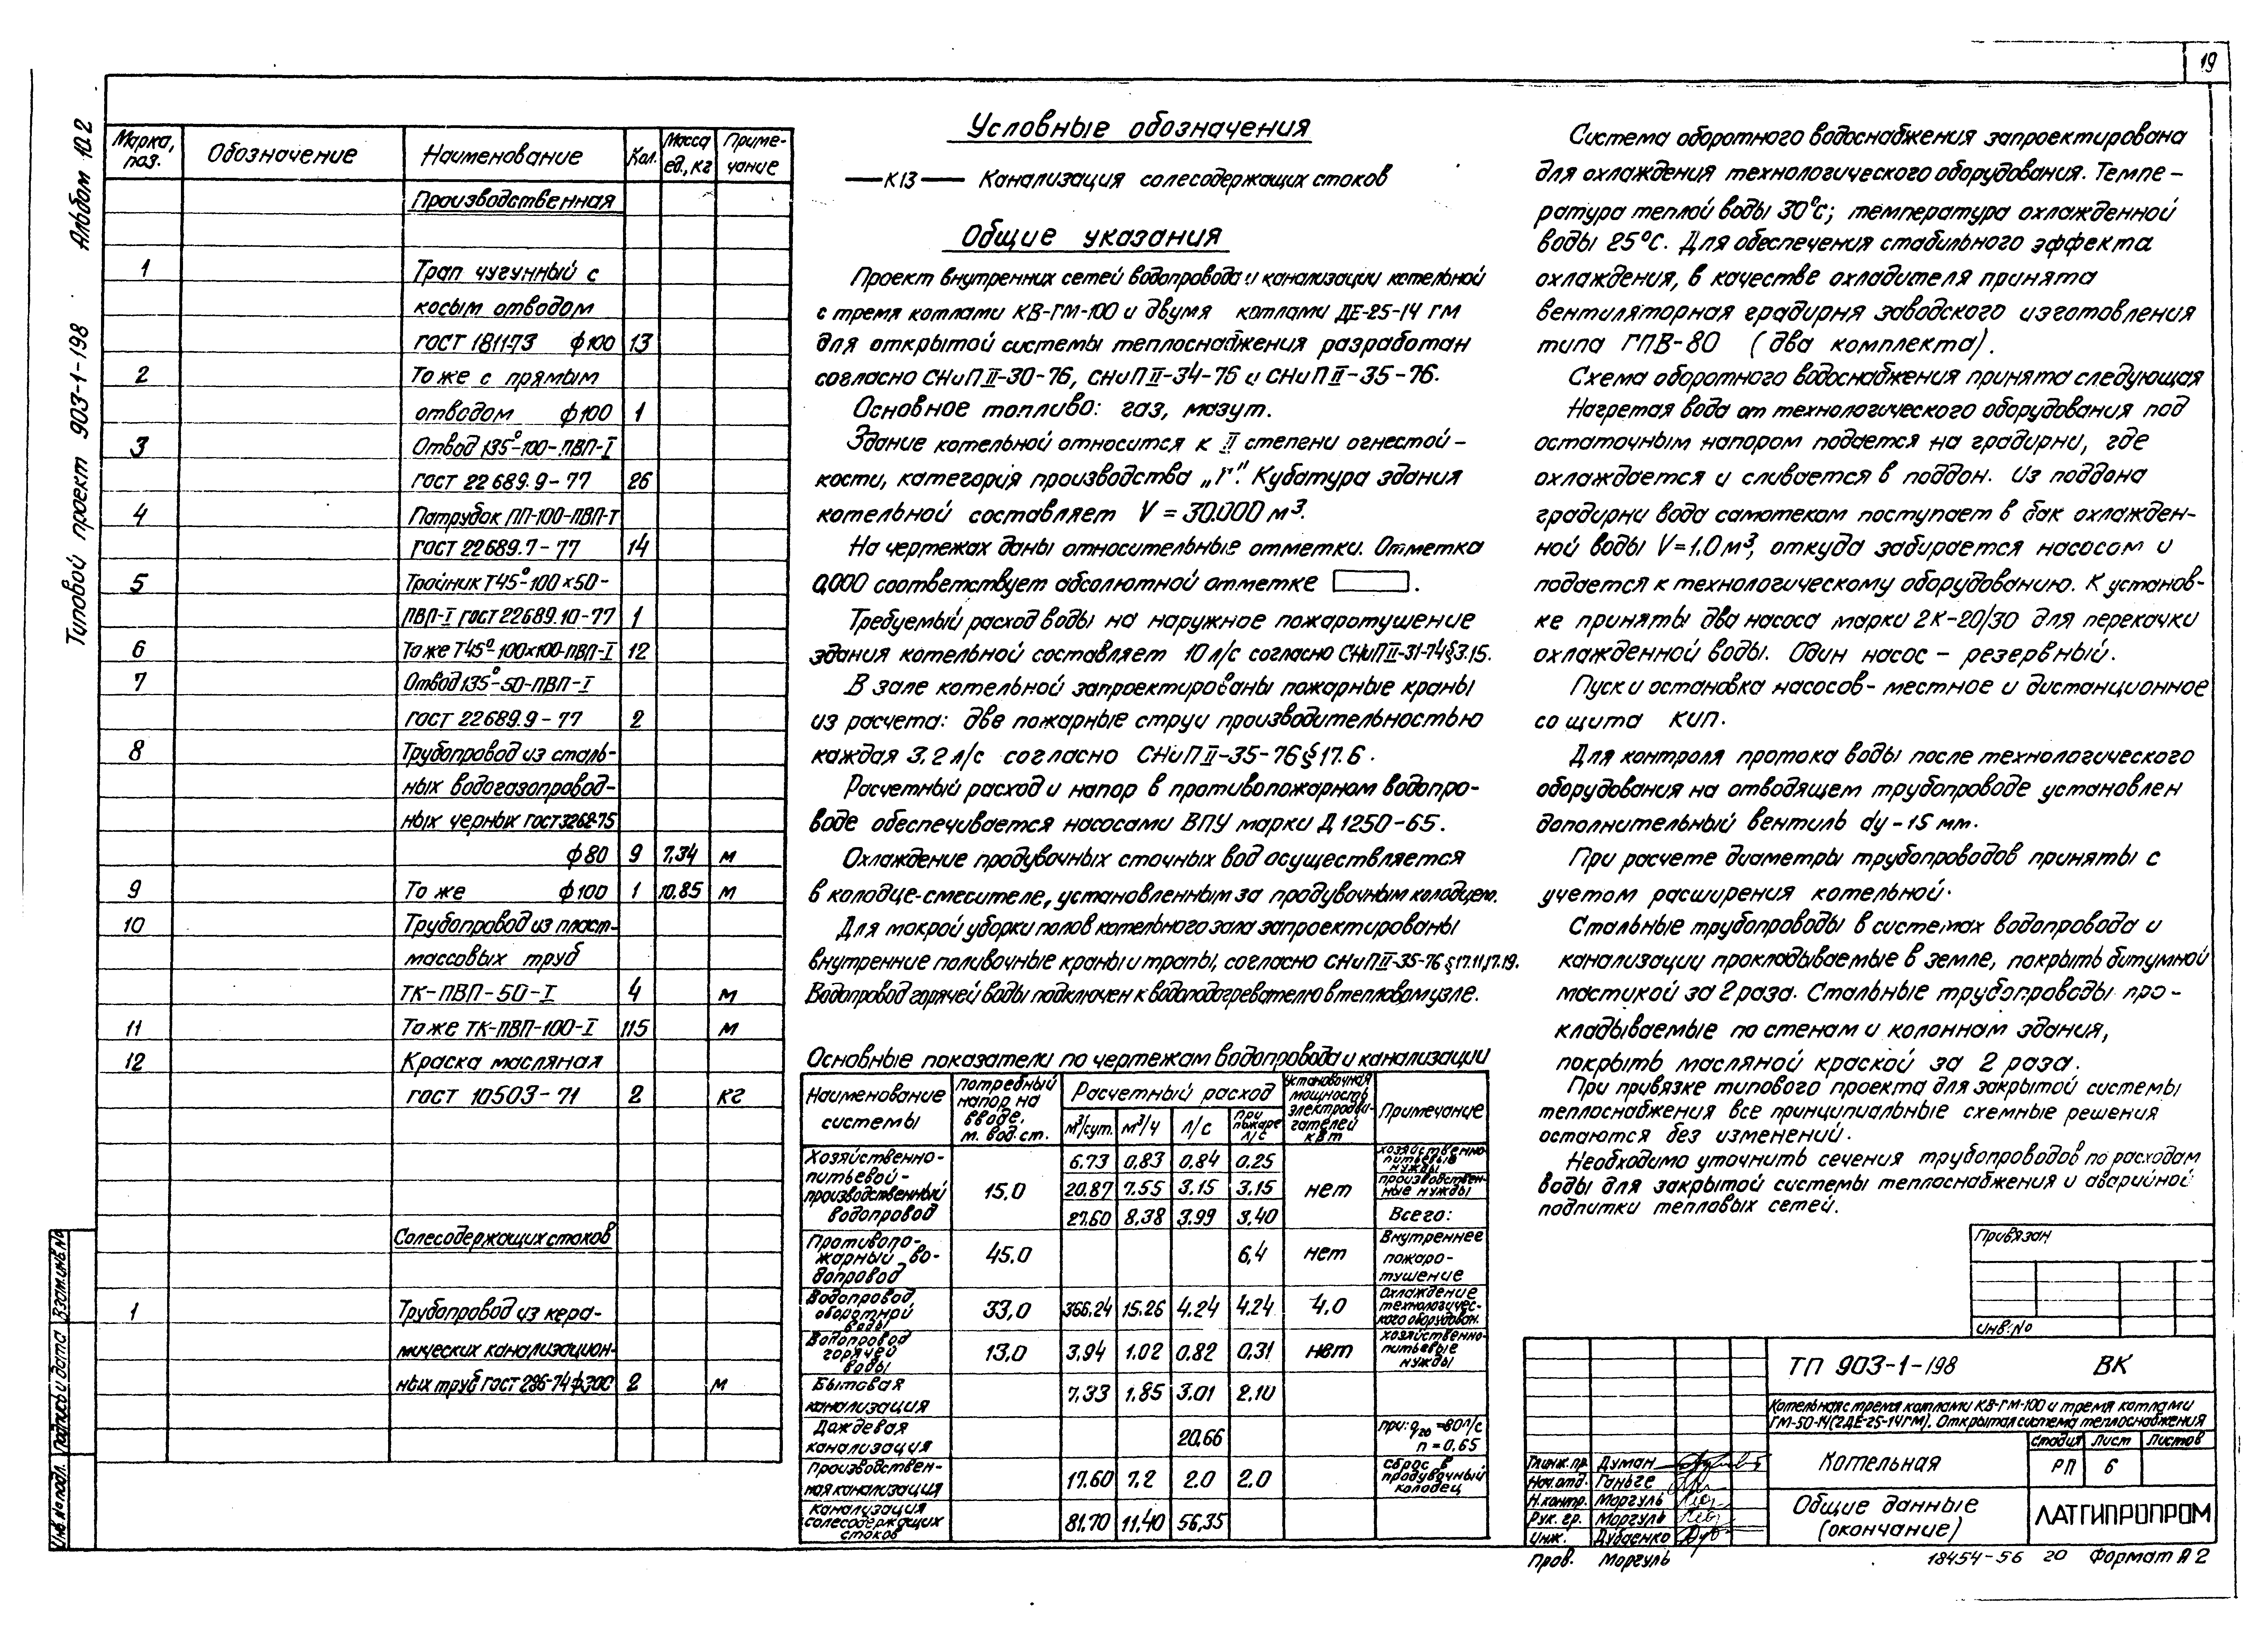 19
Альбом 10.2
Типовой проект 903-1-198
Марка, поз. Обозначение Наименование Кол. Масса ед., кг Примечание
Производственная
1 Трап чугунный с
косым отводом
ГОСТ 1811-73 ф100 13
2 То же с прямым
отводом ф100 1
3 Отвод 135°-100-ПВП-I
ГОСТ 22689.9-77 26
4 Патрубок ПП-100-ПВП-Т
ГОСТ 22689.7-77 14
5 Тройник Т45°-100×50-
ПВП-I ГОСТ 22689.10-77 1
6 То же Т45°-100×100-ПВП-I 12
7 Отвод 135°-50-ПВП-I
ГОСТ 22689.9-77 2
8 Трубопровод из сталь-
ных водогазопровод-
ных черных ГОСТ 3262-75
ф80 9 7.34 м
9 То же ф100 1 10.85 м
10 Трубопровод из пласт-
массовых труб
ТК-ПВП-50-I 4 м
11 То же ТК-ПВП-100-I 115 м
12 Краска масляная
ГОСТ 10503-71 2 кг
Солесодержащих стоков
1 Трубопровод из кера-
мических канализацион-
ных труб ГОСТ 286-74 ф300 2 м
Условные обозначения
—К13— Канализация солесодержащих стоков
Общие указания
Проект внутренних сетей водопровода и канализации котельной
с тремя котлами КВ-ГМ-100 и двумя котлами ДЕ-25-14 ГМ
для открытой системы теплоснабжения разработан
согласно СНиП II-30-76, СНиП II-34-76 и СНиП II-35-76.
Основное топливо: газ, мазут.
Здание котельной относится к II степени огнестой-
кости, категория производства „Г". Кубатура здания
котельной составляет V = 30.000 м³.
На чертежах даны относительные отметки. Отметка
0,000 соответствует абсолютной отметке .
Требуемый расход воды на наружное пожаротушение
здания котельной составляет 10 л/с согласно СНиП II-31-74 § 3.15.
В зале котельной запроектированы пожарные краны
из расчета: две пожарные струи производительностью
каждая 3.2 л/с согласно СНиП II-35-76 § 17.6.
Расчетный расход и напор в противопожарном водопро-
воде обеспечивается насосами ВПУ марки Д 1250-65.
Охлаждение продувочных сточных вод осуществляется
в колодце-смесителе, установленным за продувочным колодцем.
Для мокрой уборки полов котельного зала запроектированы
внутренние поливочные краны и трапы, согласно СНиП II-35-76 § 17.11, 17.19.
Водопровод горячей воды подключен к водоподогревателю в тепловом узле.
Основные показатели по чертежам водопровода и канализации
Наименование системы Потребный напор на вводе, м. вод. ст. Расчетный расход м³/сут. м³/ч л/с при пожаре л/с Установочная мощность электродвигателей кВт Примечание
Хозяйственно-питьевой-производственный водопровод 15.0 6.73 0.83 0.84 0.25 нет хозяйственно-питьевые нужды
20.87 7.55 3.15 3.15 производственные нужды
27.60 8.38 3.99 3.40 Всего:
Противопожарный водопровод 45.0 6,4 нет Внутреннее пожаротушение
Водопровод оборотной воды 33,0 366.24 15.26 4.24 4.24 4.0 Охлаждение технологического оборудован.
Водопровод горячей воды 13,0 3,94 1.02 0.82 0,31 нет хозяйственно-питьевые нужды
Бытовая канализация 7,33 1.85 3.01 2.10
Дождевая канализация 20,66 при: q20=80 л/с n=0.65
Производственная канализация 17.60 7.2 2.0 2.0 сброс в продувочный колодец
Канализация солесодержащих стоков 81,70 11,40 56,35
Система оборотного водоснабжения запроектирована
для охлаждения технологического оборудования. Темпе-
ратура теплой воды 30°С; температура охлажденной
воды 25°С. Для обеспечения стабильного эффекта
охлаждения, в качестве охладителя принята
вентиляторная градирня заводского изготовления
типа ГПВ-80 (два комплекта).
Схема оборотного водоснабжения принята следующая
Нагретая вода от технологического оборудования под
остаточным напором подается на градирни, где
охлаждается и сливается в поддон. Из поддона
градирни вода самотеком поступает в бак охлажден-
ной воды V=1.0 м³, откуда забирается насосом и
подается к технологическому оборудованию. К установ-
ке приняты два насоса марки 2К-20/30 для перекачки
охлажденной воды. Один насос - резервный.
Пуск и остановка насосов - местное и дистанционное
со щита КИП.
Для контроля протока воды после технологического
оборудования на отводящем трубопроводе установлен
дополнительный вентиль dy-15 мм.
При расчете диаметры трубопроводов приняты с
учетом расширения котельной.
Стальные трубопроводы в системах водопровода и
канализации прокладываемые в земле, покрыть битумной
мастикой за 2 раза. Стальные трубопроводы про-
кладываемые по стенам и колоннам здания,
покрыть масляной краской за 2 раза.
При привязке типового проекта для закрытой системы
теплоснабжения все принципиальные схемные решения
остаются без изменений.
Необходимо уточнить сечения трубопроводов по расходам
воды для закрытой системы теплоснабжения и аварийной
подпитки тепловых сетей.
Привязан
Инв. №
ТП 903-1-198 ВК
Котельная с тремя котлами КВ-ГМ-100 и тремя котлами
ГМ-50-14 (2ДЕ-25-14ГМ). Открытая система теплоснабжения
Котельная
Стадия Лист Листов
РП 6
Общие данные
(окончание)
ЛАТГИПРОПРОМ
Гл.инж.пр. Думан
Нач.отд. Ганьге
Н.контр. Моргуль
Рук. гр. Моргуль
Инж. Дубаенко
Пров. Моргуль
18454-56 20 Формат А2
Инв. № подл. Подпись и дата Взам. инв. №